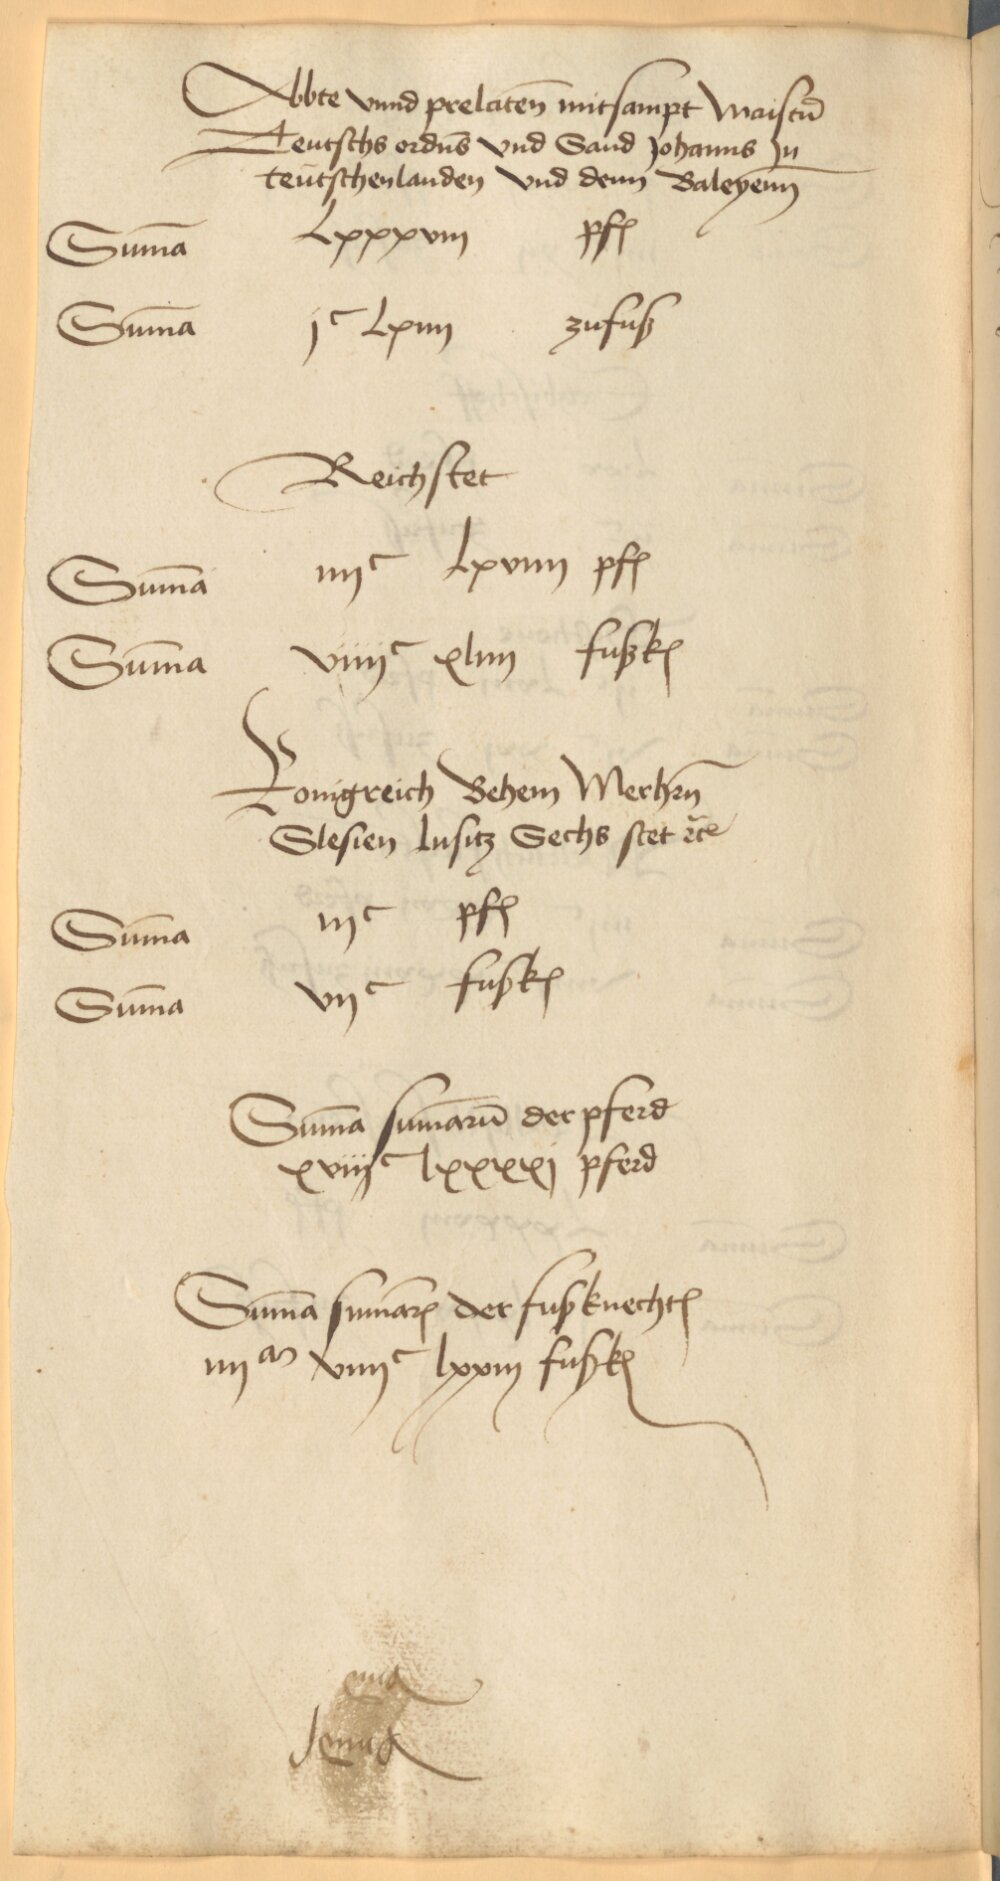 Abbte vnnd prelaten mitsampt Maister
Teutschs ordens vnd Sand Johanns In
teutschenlanden vnd denn Baleyenn
Suma Lxxxviii pf
Suma jc Lxiiii zufuß
Reichstet
Suma iiiic Lxviiii pf
Suma viiiic xliiii fußk
Konigreich Behem Merhern
Slesien lusitz Sechs stet etc
Suma iiic pf
Suma viic fußk
Suma sumarum der pferd
xviiic lxxxxj pferd
Suma sumar der fußknecht
iiiim viiiic lxxiii fußk